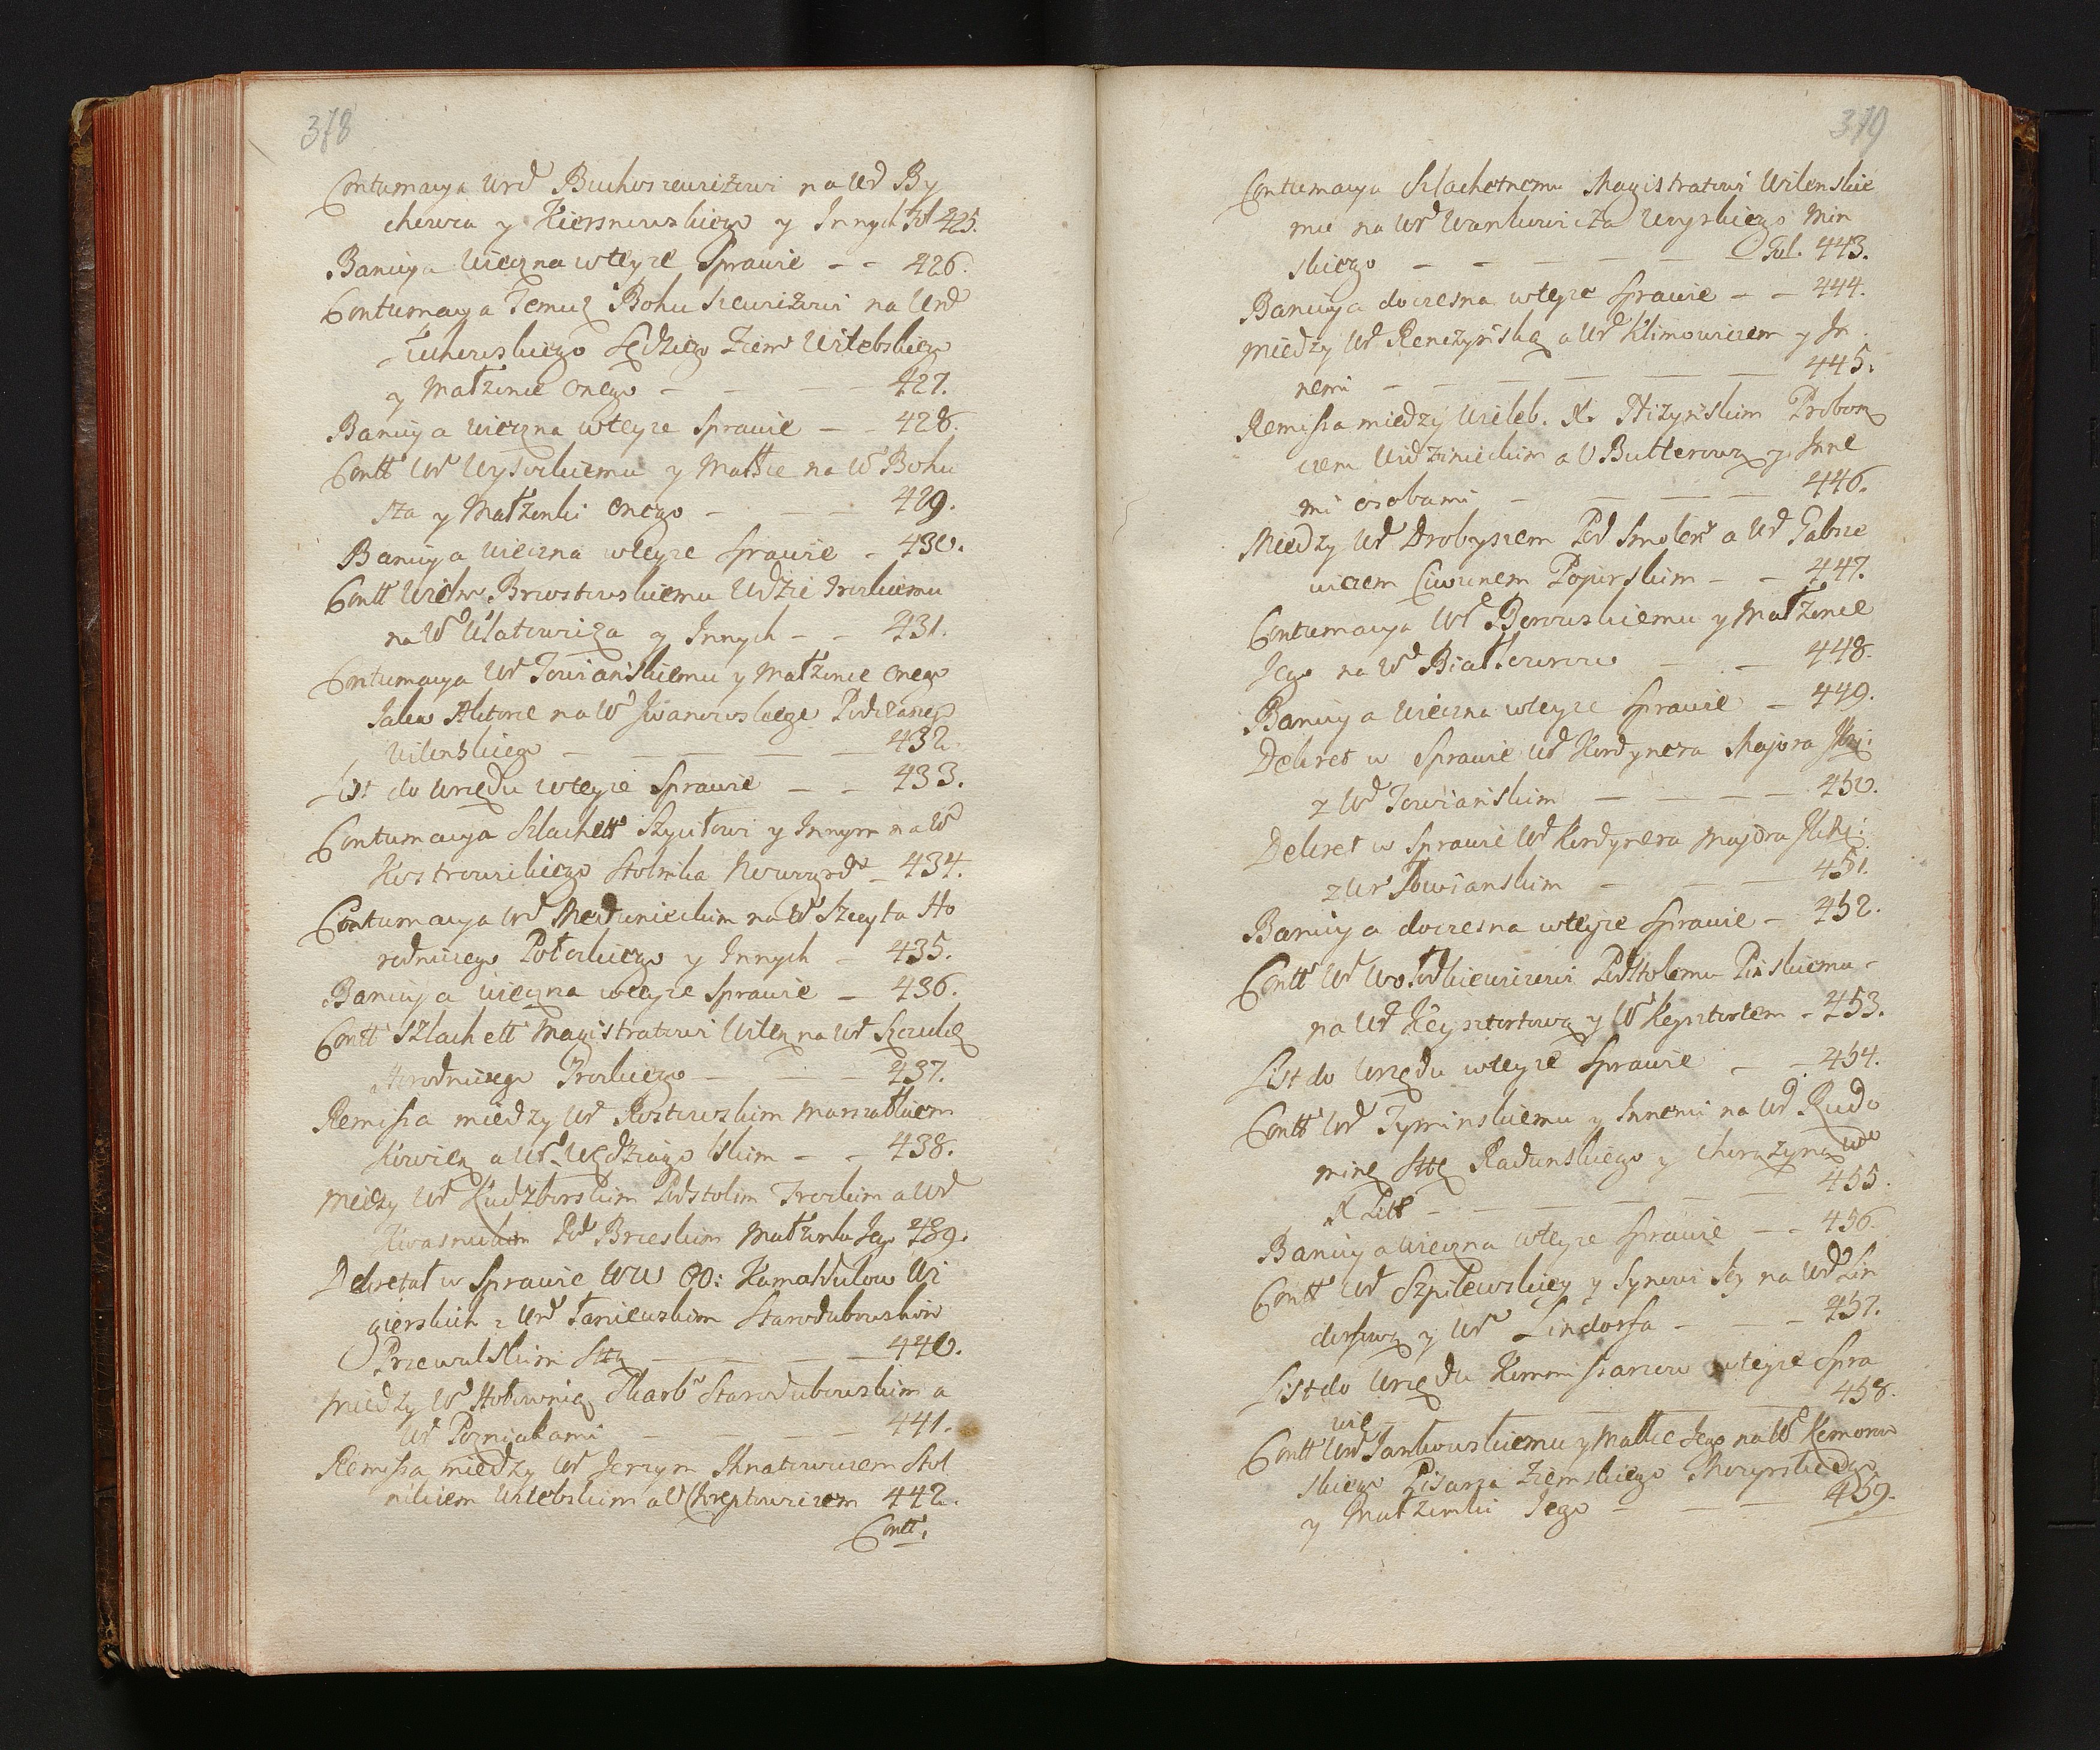 378
Contumacya Urd Buchowieckiemu na Urd By
chowca y Kiersnowskiego y Innych Fol 425.
Baniĉya wieczna wteyze Sprawie - - 426.
Contumacya Temuz Bohuszewiczowi na Urd
Żuchowskiego Sędziego Ziem Witebskiego
y Małzonce Onego - - - 427.
Bannicya wieczna wteyze Sprawie - - 428.
Contt Ur Wysockiemu y Małżce na Ur Bohu
sza y Małzonki Onego - - - 429.
Bannicya wieczna wteyze Sprawie - 430.
Contt Wielm Brzostowskiemu Wdzie Trockiemu
na Ur Ulatowicza y Innych - - 431.
Contumacya Ur Towiańskiemu y Małzonce Onego
Jako Aktorce na Ur Iwanowskiego Podczaszego
Wilenskiego - - - 432.
List do Urzędu wteyze Sprawie - - 433.
Contumacya Szlachett Szycikowi y Innym na Ur
Kostrowickiego Stolnika Nowogrd - 434.
Contumacya Ur Meduneckim na Ur Szczyta Ho
rodniczego Połockiego y Innych - 435.
Bannicya wieczna wteyze Sprawie - 436.
Contt Szlachett Magistratowi Wilen na Ur Szczukę
Horodniczego Trockiego - - - 437.
Remissa miedzy Ur Rostowskim Marszałkiem
Kowień a Ur Wędziagolskim - - 438.
Miedzy Ur Kudzborskim Podstolim Trockim a Urd
Kwasnickim Pod Brzeskim Małzonką Jego 439.
Dekretał w Sprawie WW OO: Kamałdulow Wi
gierskich z Urd Łaniewskim Starodubowskim
Przewalskim Sttą - - - 440.
Miedzy Ur Hołownią Skarb Starodubowskim a
Ur Pozniakami - - - 441.
Remissa miedzy Ur Jerzym Ihnatowiczem Stol
nikiem Witebskim a Ur Chreptowiczem 442.
Contt.
379
Contumacya Szlachetnemu Magistratowi Wilenskie
mu na Ur Wankowicza Woyskiego Min
skiego - - - - Fol. 443.
Bannicya doczesna wteyze Sprawie - - 444.
Miedzy Ur Renczyńską a Ur Klimowiczem y In
nemi - - - 445.
Remissa miedzy Wieleb. X. Hizyńskim Probosz
czem Widziniskim a U Butlerową y Inne
mi osobami - - - 446.
Miedzy Ur Drobyszem Pod Smoleń a Ur Gabrie
wiczem Ciwunem Pojurskim - - 447.
Contumacya Ur Borowskiemu y Małzonce
Jego na Ur Białłozorow - - 448.
Bannicya wieczna wteyze Sprawie - 449.
Dekret w Sprawie Ur Kordynera Majora JKM:
z Ur Towiańskim - - - 450.
Dekret w Sprawie Ur Kordynera Majora JKM:
z Ur Towianskim - - - 451.
Bannicya doczesna wteyze Sprawie - 452.
Contt Ur Wołodkiewiczowi Podstolemu Pińskiemu -
na Ur Keysztortową y Ur Keysztortem - 453.
List do Urzędu wteyze Sprawie - - 454.
Contt Ur Tyminskiemu y Innemi na Ur Rudo
minę Sttę Radunskiego y Chorązynę Wdo
X Litt - - - 455.
Bannicya wieczna wteyze Sprawie - - 456.
Contt Ur Szpilewskiey y Synowi Jey na Ur Lin
dorfową y Ur Lindorfa - - - 457.
List do Urzędu Kommissarzow wteyze Spra
wie - - - 458.
Contt Ur Jankowskiemu y Małłce Jego na Ur Kemonn
skiego Pisarza Ziemskiego Mozyrskiego
y Małzonki Jego - - - 459.